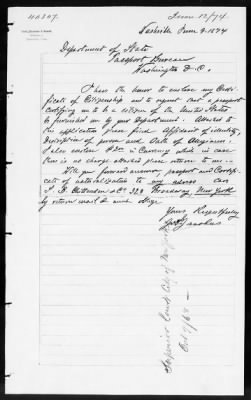 40307
June 12/74
Nashville June 9. 1874
Department of State
Passport Bureau
Washington D.C.
I have the honor to enclose my Certi-
ficate of Citizenship and to request that a passport
Certifying me to be a citizen of the United States
be furnished me by your Department. Attached to
this application please find Affidavit of identity,
Description of person and Oath of Allegiance.
I also enclose in Currency which in case
there is no charge attached please return to me.
Will you forward answer, passport and Certifi-
cate of naturalization to my address care
& Co. 328 Broadway, New York
by return mail & much oblige
Yours Respectfully
Superior Court City of New York
Oct 9/68